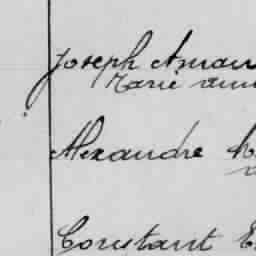 Joseph Aman
Marie ann
Alexandre
Constant E